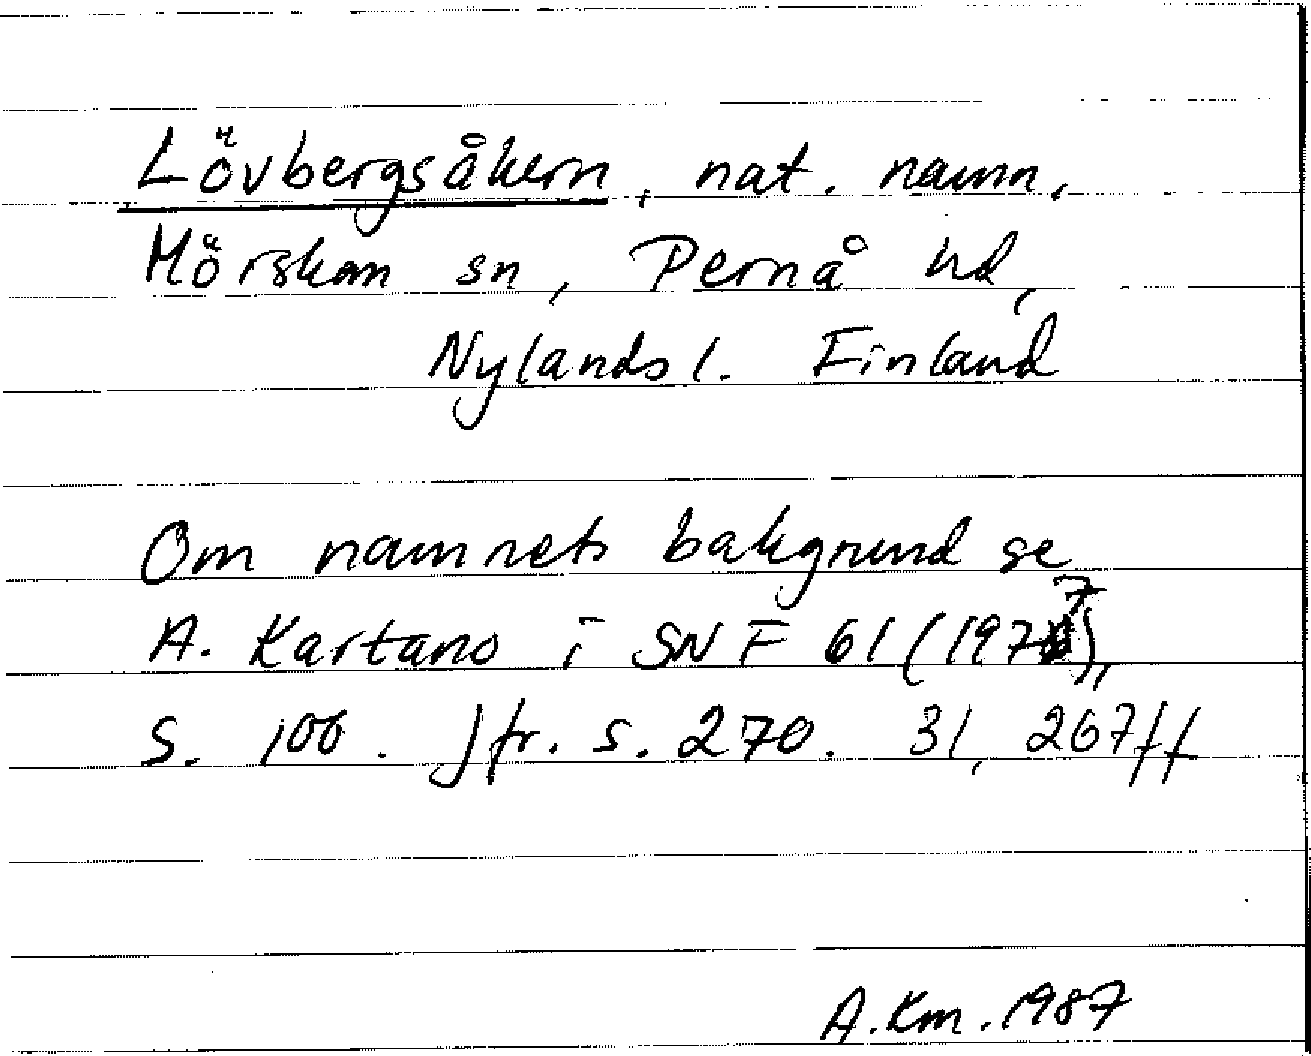 Lövbergsåkern, nat. namn,
Mörskom sn, Pernå hd,
Nylands l. Finland
Om namnets bakgrund se
A. Kartano i SNF 61 (1977),
s. 106. Jfr. s. 270. 31, 267ff
A. Km. 1987